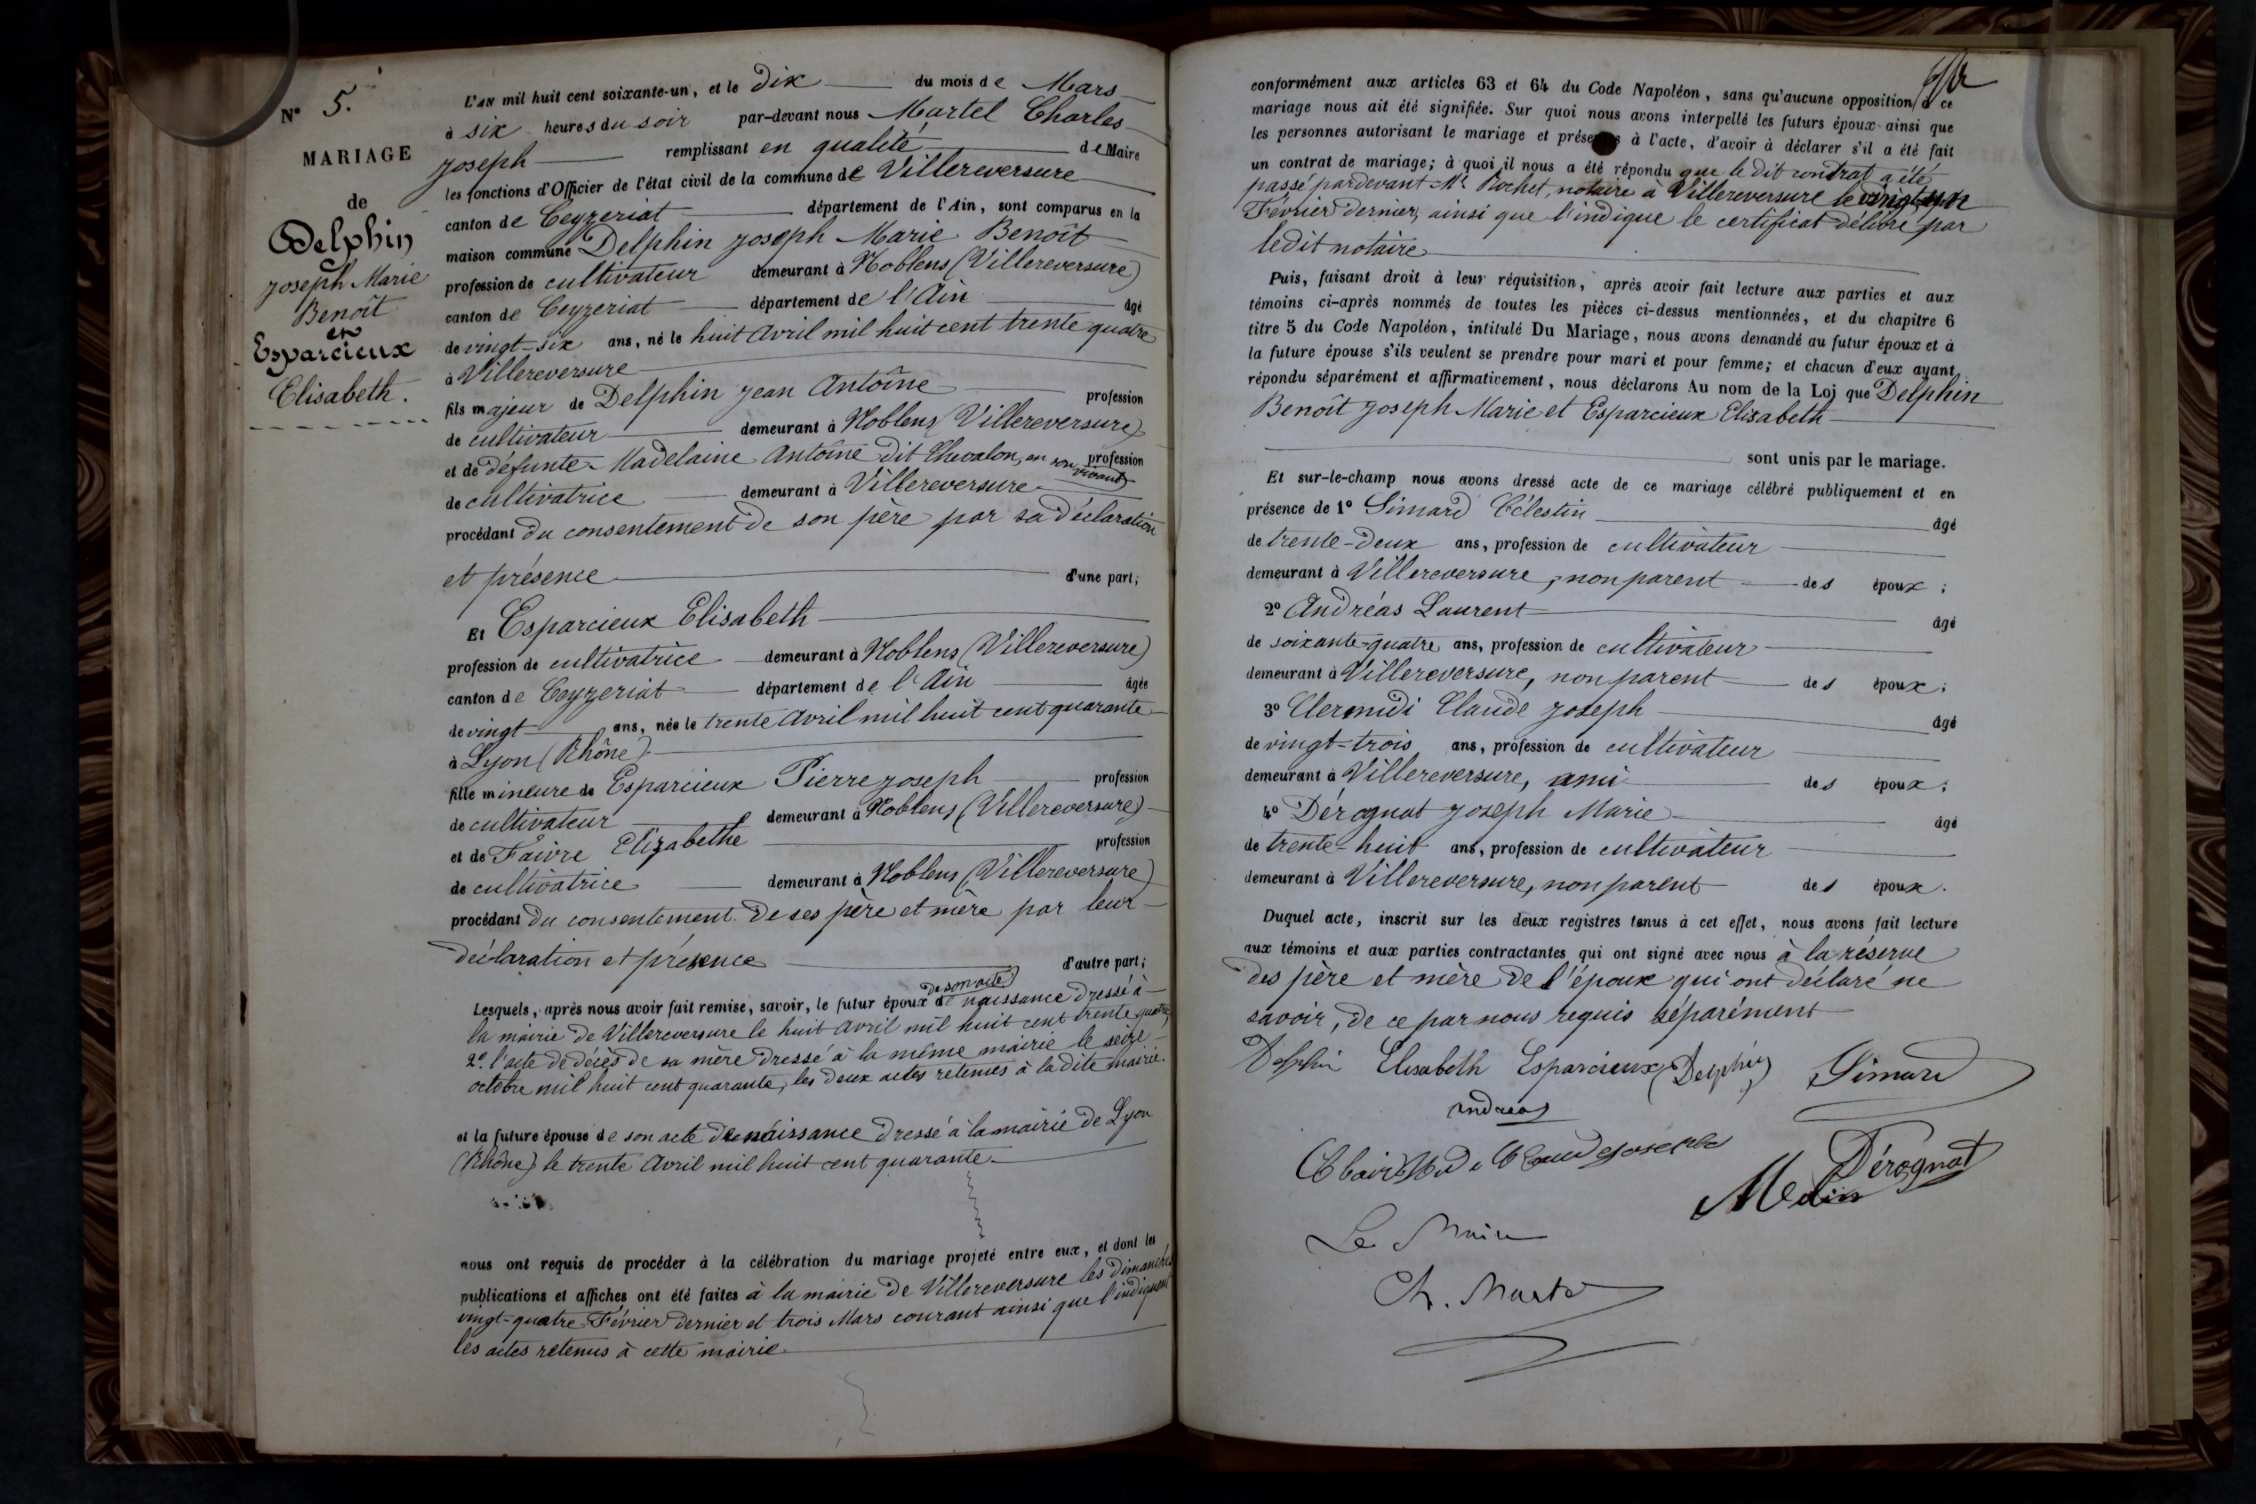 N° 5.
MARIAGE
de
Delphin
Joseph Marie
Benoît
et
Esparcieux
Elisabeth.
L'AN mil huit cent soixante-un, et le Dix du mois de Mars
à six heures du soir par-devant nous Martel Charles
Joseph remplissant en qualité de Maire
les fonctions d'Officier de l'état civil de la commune de Villereversure
canton de Ceyzeriat département de l'Ain, sont comparus en la
maison commune Delphin Joseph Marie Benoît
profession de cultivateur demeurant à Noblens (Villereversure)
canton de Ceyzeriat département de l'Ain âgé
de vingt-six ans, né le huit Avril mil huit cent trente quatre
à Villereversure
fils majeur de Delphin Jean Antoine profession
de cultivateur demeurant à Noblens (Villereversure)
et de défunte Madelaine Antoine dit Chevalon, en son vivant profession
de cultivatrice demeurant à Villereversure
procédant du consentement de son père par sa déclaration
et présence d'une part;
Et Esparcieux Elisabeth
profession de cultivatrice demeurant à Noblens (Villereversure)
canton de Ceyzeriat département de l'Ain âgée
de vingt ans, née le trente Avril mil huit cent quarante
à Lyon (Rhône)
fille mineure de Esparcieux Pierre Joseph profession
de cultivateur demeurant à Noblens (Villereversure)
et de Faivre Elizabethe profession
de cultivatrice demeurant à Noblens (Villereversure)
procédant du consentement de ses père et mère par leur
déclaration et présence d'autre part;
Lesquels, après nous avoir fait remise, savoir, le futur époux de son acte de naissance dressé à
la mairie de Villereversure le huit Avril mil huit cent trente quatre,
2° l'acte de décès de sa mère dressé à la même mairie le seize
octobre mil huit cent quarante, les deux actes retenus à la dite mairie.
et la future épouse de son acte de naissance dressé à la mairie de Lyon
(Rhône) le trente Avril mil huit cent quarante
nous ont requis de procéder à la célébration du mariage projeté entre eux, et dont les
publications et affiches ont été faites à la mairie de Villereversure les dimanches
vingt-quatre Février dernier et trois Mars courant ainsi que l'indiquent
les actes retenus à cette mairie
conformément aux articles 63 et 64 du Code Napoléon, sans qu'aucune opposition à ce
mariage nous ait été signifiée. Sur quoi nous avons interpellé les futurs époux ainsi que
les personnes autorisant le mariage et présentes à l'acte, d'avoir à déclarer s'il a été fait
un contrat de mariage; à quoi il nous a été répondu que le dit contrat a été
passé pardevant Me Rochet, notaire à Villereversure le vingt un
Février dernier, ainsi que l'indique le certificat délivré par
ledit notaire
Puis, faisant droit à leur réquisition, après avoir fait lecture aux parties et aux
témoins ci-après nommés de toutes les pièces ci-dessus mentionnées, et du chapitre 6
titre 5 du Code Napoléon, intitulé Du Mariage, nous avons demandé au futur époux et à
la future épouse s'ils veulent se prendre pour mari et pour femme; et chacun d'eux ayant
répondu séparément et affirmativement, nous déclarons Au nom de la Loi que Delphin
Benoît Joseph Marie et Esparcieux Elisabeth
sont unis par le mariage.
Et sur-le-champ nous avons dressé acte de ce mariage célébré publiquement et en
présence de 1° Simard Célestin âgé
de trente-deux ans, profession de cultivateur
demeurant à Villereversure, non parent des époux;
2° Andréas Laurent âgé
de soixante-quatre ans, profession de cultivateur
demeurant à Villereversure, non parent des époux;
3° Clermidi Claude Joseph âgé
de vingt-trois ans, profession de cultivateur
demeurant à Villereversure, ami des époux;
4° Dérognat Joseph Marie âgé
de trente-huit ans, profession de cultivateur
demeurant à Villereversure, non parent des époux.
Duquel acte, inscrit sur les deux registres tenus à cet effet, nous avons fait lecture
aux témoins et aux parties contractantes qui ont signé avec nous à la réserve
des père et mère de l'épouse qui ont déclaré ne
savoir, de ce par nous requis séparément
Delphin Elisabeth Esparcieux Delphin Simard
andreas
Claude joseph
Dérognat
Le Maire
Ch. Martel